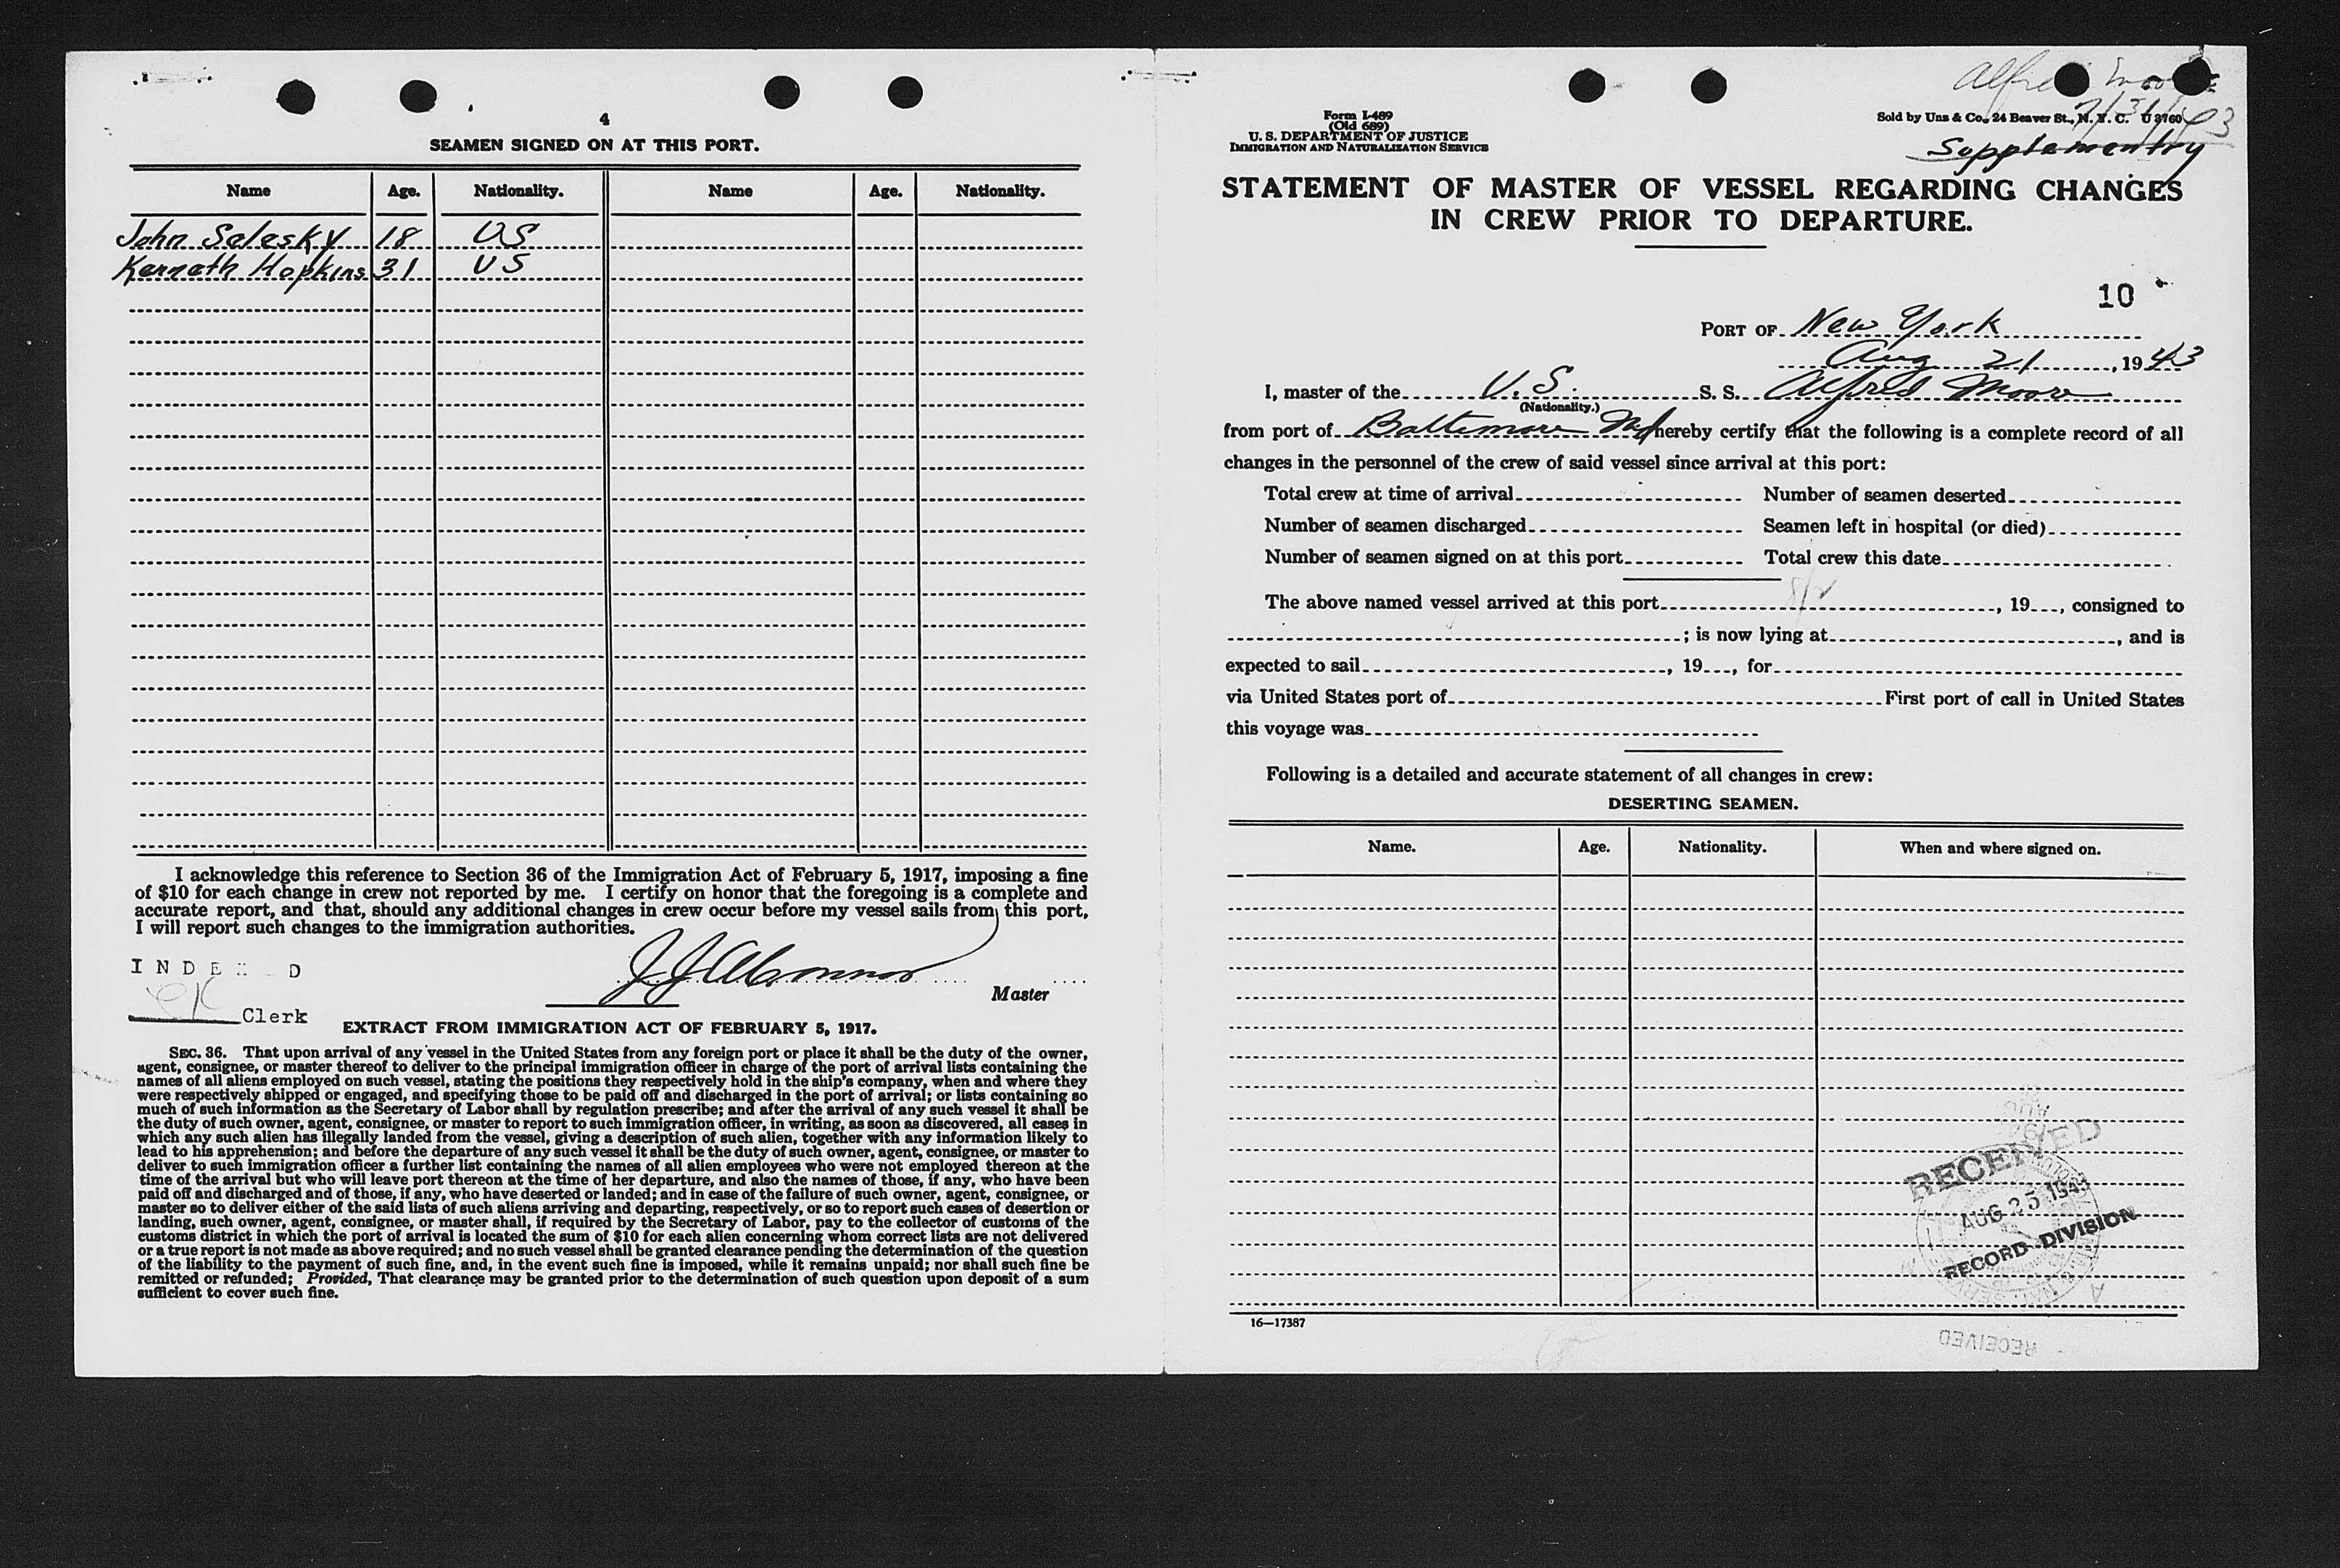 4
SEAMEN SIGNED ON AT THIS PORT.
Name Age. Nationality. Name Age. Nationality.
John Salasky 18 US
Kenneth Hopkins 31 US
I acknowledge this reference to Section 36 of the Immigration Act of February 5, 1917, imposing a fine
of $10 for each change in crew not reported by me. I certify on honor that the foregoing is a complete and
accurate report, and that, should any additional changes in crew occur before my vessel sails from this port,
I will report such changes to the immigration authorities.
Master
Clerk
EXTRACT FROM IMMIGRATION ACT OF FEBRUARY 5, 1917.
SEC. 36. That upon arrival of any vessel in the United States from any foreign port or place it shall be the duty of the owner,
agent, consignee, or master thereof to deliver to the principal immigration officer in charge of the port of arrival lists containing the
names of all aliens employed on such vessel, stating the positions they respectively hold in the ship's company, when and where they
were respectively shipped or engaged, and specifying those to be paid off and discharged in the port of arrival; or lists containing so
much of such information as the Secretary of Labor shall by regulation prescribe; and after the arrival of any such vessel it shall be
the duty of such owner, agent, consignee, or master to report to such immigration officer, in writing, as soon as discovered, all cases in
which any such alien has illegally landed from the vessel, giving a description of such alien, together with any information likely to
lead to his apprehension; and before the departure of any such vessel it shall be the duty of such owner, agent, consignee, or master to
deliver to such immigration officer a further list containing the names of all alien employees who were not employed thereon at the
time of the arrival but who will leave port thereon at the time of her departure, and also the names of those, if any, who have been
paid off and discharged and of those, if any, who have deserted or landed; and in case of the failure of such owner, agent, consignee, or
master so to deliver either of the said lists of such aliens arriving and departing, respectively, or so to report such cases of desertion or
landing, such owner, agent, consignee, or master shall, if required by the Secretary of Labor, pay to the collector of customs of the
customs district in which the port of arrival is located the sum of $10 for each alien concerning whom correct lists are not delivered
or a true report is not made as above required; and no such vessel shall be granted clearance pending the determination of the question
of the liability to the payment of such fine, and, in the event such fine is imposed, while it remains unpaid; nor shall such fine be
remitted or refunded; Provided, That clearance may be granted prior to the determination of such question upon deposit of a sum
sufficient to cover such fine.
Form I-489
(Old 689)
U. S. DEPARTMENT OF JUSTICE
IMMIGRATION AND NATURALIZATION SERVICE
Sold by Unz & Co., 24 Beaver St., N. Y. C. U 3760
7/31/43
Supplementry
STATEMENT OF MASTER OF VESSEL REGARDING CHANGES
IN CREW PRIOR TO DEPARTURE.
10
PORT OF New York
Aug 21, 1943
I, master of the U.S. S. S. Alfred Moore
(Nationality.)
from port of Baltimore Md hereby certify that the following is a complete record of all
changes in the personnel of the crew of said vessel since arrival at this port:
Total crew at time of arrival Number of seamen deserted
Number of seamen discharged Seamen left in hospital (or died)
Number of seamen signed on at this port Total crew this date
The above named vessel arrived at this port , 19 , consigned to
; is now lying at , and is
expected to sail , 19 , for
via United States port of First port of call in United States
this voyage was
Following is a detailed and accurate statement of all changes in crew:
DESERTING SEAMEN.
Name. Age. Nationality. When and where signed on.
RECEIVED
AUG 25 1943
RECORD DIVISION
16—17387
RECEIVED